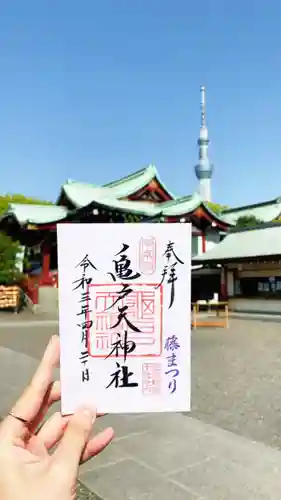 奉拝
藤まつり
亀戸天神社
令和三年四月二日